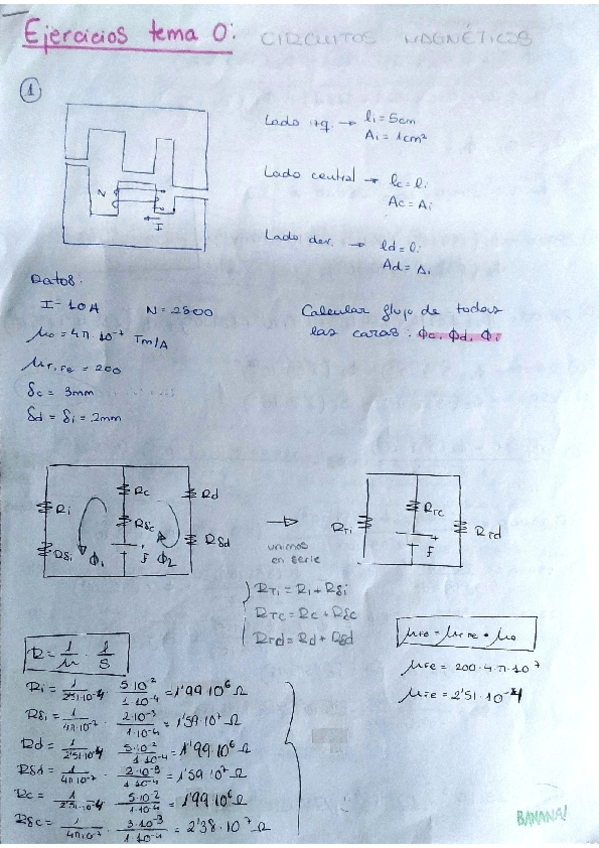 Ejercicios tema 0: CIRCUITOS MAGNÉTICOS
1
Lado izq. → li = 5cm
Ai = 1cm²
Lado central → lc = li
Ac = Ai
Lado der. → ld = li
Ad = Ai
N
I
Datos:
I = 10A N = 2500
μo = 4π·10⁻⁷ Tm/A
μr,fe = 200
δc = 3mm
δd = δi = 2mm
Calcular flujo de todas
las caras: ϕc, ϕd, ϕi
Ri
Rδi
Rc
Rδc
+
f
Rd
Rδd
ϕ1
ϕ2
→
unimos
en serie
RTi
RTc
+
f
RTd
RTi = Ri + Rδi
RTc = Rc + Rδc
RTd = Rd + Rδd
R = 1/μ · l/S
μfe = μr,fe · μo
μfe = 200·4·π·10⁷
μfe = 2'51·10⁻⁴
Ri = 1/2'51·10⁻⁴ · 5·10⁻²/1·10⁻⁴ = 1'99·10⁶ Ω
Rδi = 1/4π·10⁻⁷ · 2·10⁻³/1·10⁻⁴ = 1'59·10⁷ Ω
Rd = 1/2'51·10⁻⁴ · 5·10⁻²/1·10⁻⁴ = 1'99·10⁶ Ω
Rδd = 1/4π·10⁻⁷ · 2·10⁻³/1·10⁻⁴ = 1'59·10⁷ Ω
Rc = 1/2'51·10⁻⁴ · 5·10⁻²/1·10⁻⁴ = 1'99·10⁶ Ω
Rδc = 1/4π·10⁻⁷ · 3·10⁻³/1·10⁻⁴ = 2'38·10⁷ Ω
BANANA!